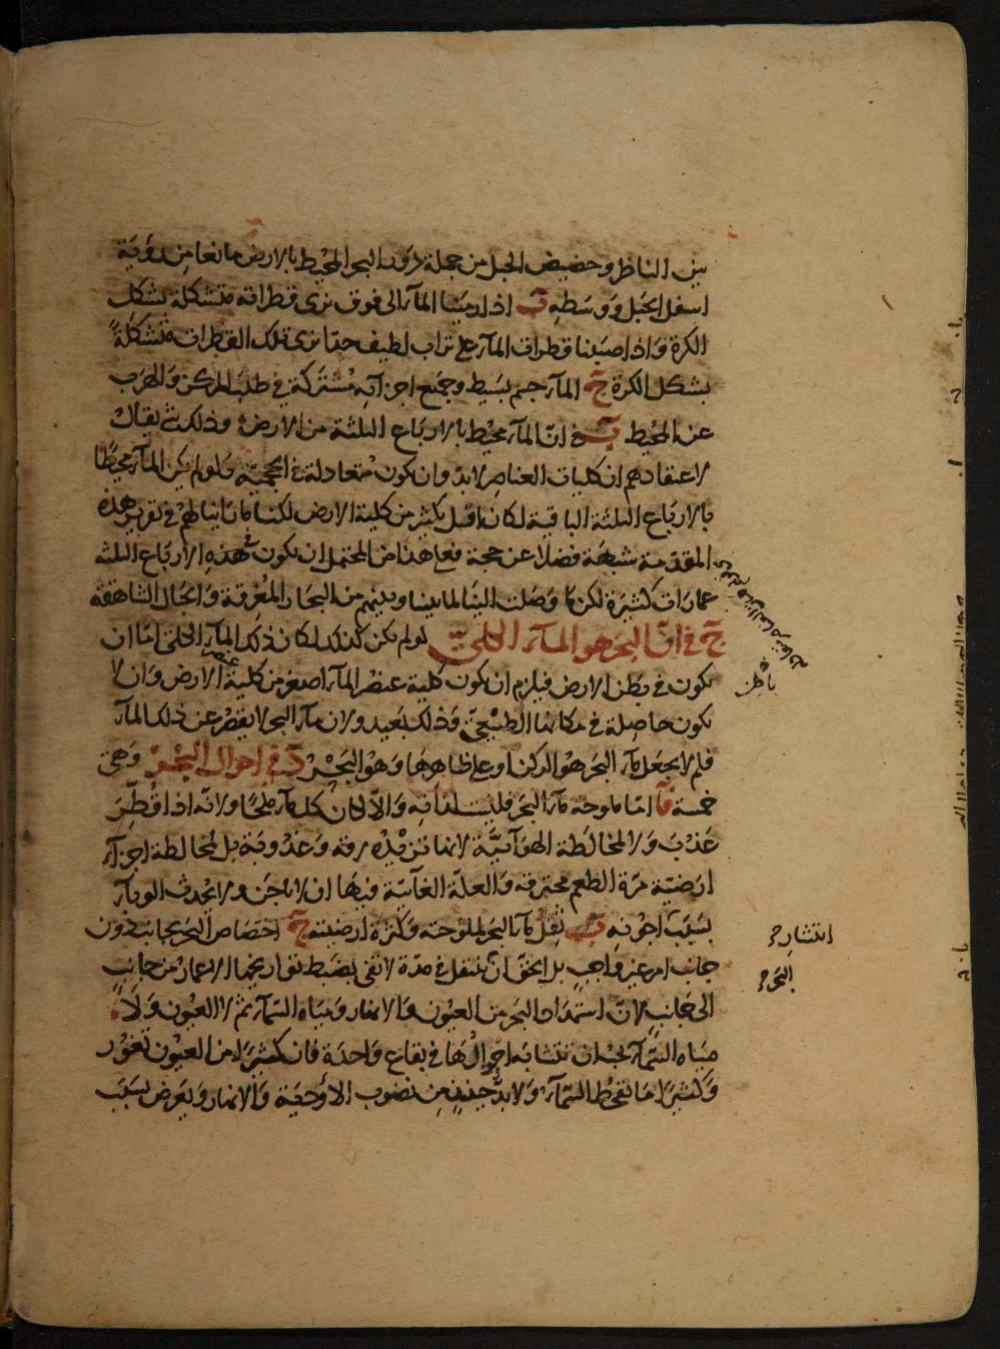 بين الناظر وحضيض الجبل من جملة دور البحر المحيط بالارض مانعا من رؤية
اسفل الجبل ووسطه ب اذا رمينا المآء الى فوق نرى قطراته متشكلة بشكل
الكرة واذا صببنا قطرات المآء على تراب لطيف جدا نرى تلك القطرات متشكلة
بشكل الكرة ج المآء جسم بسيط وجميع اجزآئه مشتركة في طلب المركز والهرب
عن المحيط ب في ان المآء محيط بالارباع الثلثة من الارض وذلك شئ يقال
لاعتقادهم ان كليات العناصر لابد وان تكون متعادلة في الحجمية ولو لم يكن المآء محيطا
بالارباع الثلثة الباقية لكان اقل بكثير من كلية الارض لكنا ما راينا لهم في تقرير هذه
المقدمة شبهة فضلا عن حجة فعلى هذا من المحتمل ان يكون في هذه الارباع الثلثة
عمارات كثيرة لكن ما وصلت الينا لما بيننا وبينهم من البحار المغرقة والجبال الشاهقة
ج في ان البحر هو المآء الكلي لو لم يكن كذلك لكان ذلك المآء الكلي اما ان
يكون في بطن الارض فيلزم ان يكون كلية عنصر المآء اصغر من كلية الارض وان لا
يكون حاصلة في مكانها الطبيعي وذلك بعيد ولان مآء البحر لا يقصر عن ذلك المآء
فلم لا يجعل مآء البحر هو الركن او على ظاهرها وهو البحر د في احوال البحر وهي
خمسة آ اما ملوحة مآء البحر فليست لذاته والا لكان كل مآء ملحا ولانه اذا قطر
عذب ولا لمخالطة الهوآئية لانها تزيده رقة وعذوبة بل لمخالطة اجزآء
ارضية مرة الطعم محترقة والعلة الغآئية فيها ان لا ياجن ولا يحدث الوبآء
بسبب اجونه ب ثقل مآء البحر لملوحته وكثرة ارضيته ج اختصاص البحر بجانب دون
جانب امر غير واجب بل الحق ان ينتقل في مدة لا تفي بضبط تواريخها الاعمار من جانب
الى جانب لان استمداد البحر من العيون والانهار ومياه السمآء ثم لا العيون ولا
مياه السمآء يجب ان تتشابه احوالها في بقاع واحدة فان كثيرا من العيون تغور
وكثيرا ما تقحط السمآء ولابد حينئذ من نضوب الاودية والانهار ويعرض بسبب
باطن
انتشار
البحر